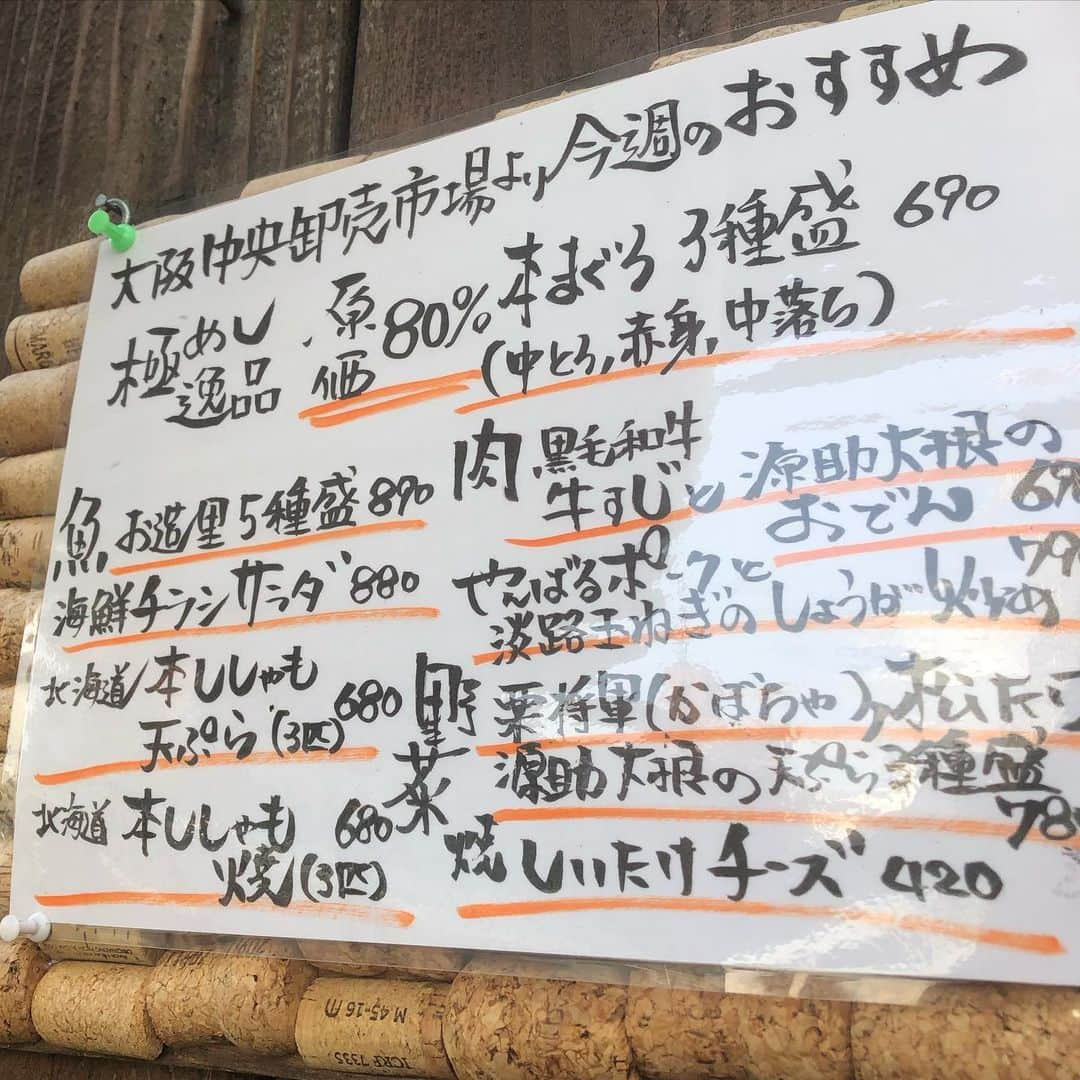 大阪中央卸売市場より今週のおすすめ
極めし逸品、原価80% 本まぐろ3種盛 690
(中とろ,赤身,中落ち)
魚
お造里5種盛 890
海鮮チラシサラダ 880
北海道 本ししゃも
天ぷら(3匹) 680
北海道 本ししゃも 680
焼(3匹)
肉
黒毛和牛
牛すじと源助大根の
おでん
やんばるポークと
淡路玉ねぎのしょうが炒め
野菜
栗将軍(かぼちゃ)
源助大根の天ぷら3種盛
焼しいたけチーズ 420
M 45-16
ICRF 7335